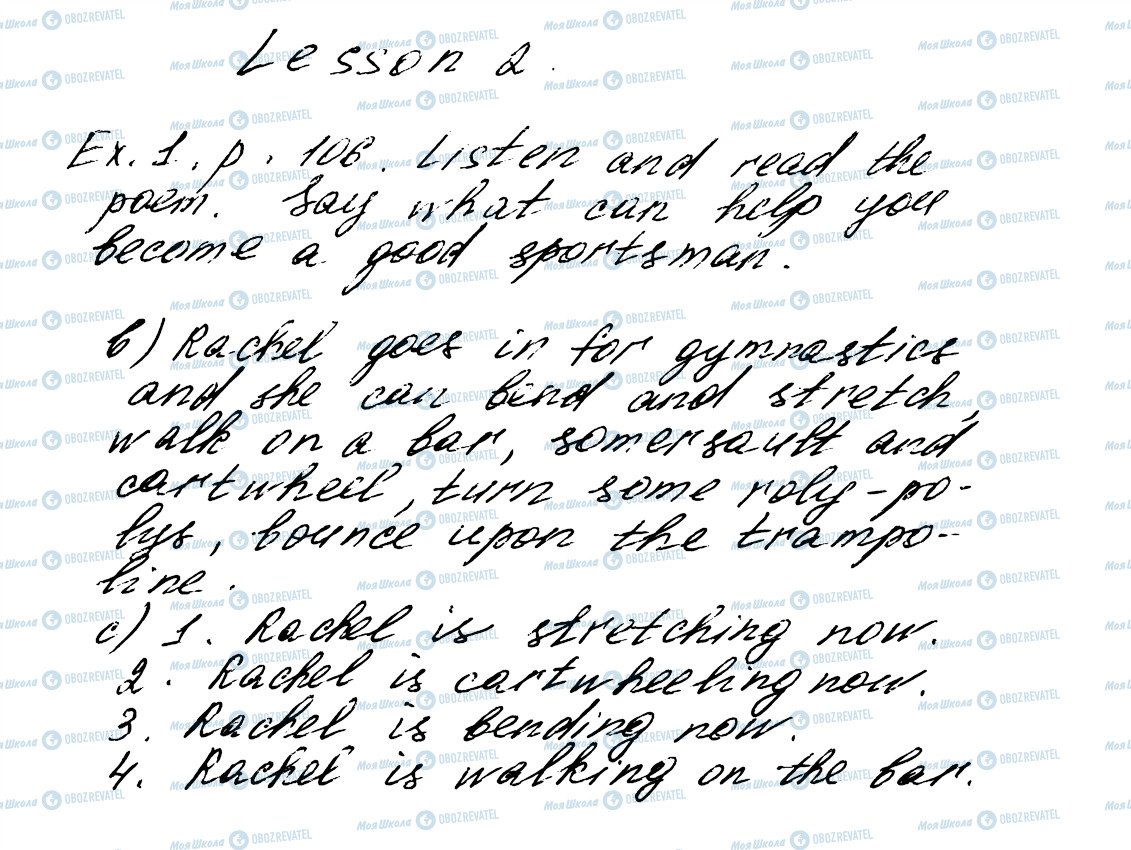 Lesson 2.
Ex. 1, p. 106. Listen and read the
poem. Say what can help you
become a good sportsman.
b) Rachel goes in for gymnastics
and she can bend and stretch,
walk on a bar, somersault and
cartwheel, turn some roly-po-
lys, bounce upon the trampo-
line.
c) 1. Rachel is stretching now.
2. Rachel is cartwheeling now.
3. Rachel is bending now.
4. Rachel is walking on the bar.
Моя Школа OBOZREVATEL